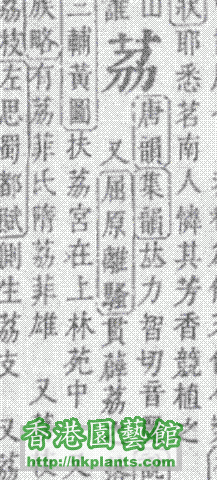 狀耶悉茗南人憐其芳香競植之
山
唐韻集韻𠀤力智切音
誰
荔
又屈原離騷貫薜荔
三輔黃圖扶荔宮在上林苑中
族略有荔菲氏隋荔菲雄 又
荔枝左思蜀都賦側生荔支 又荔
香港園藝館
http://hkplants.com